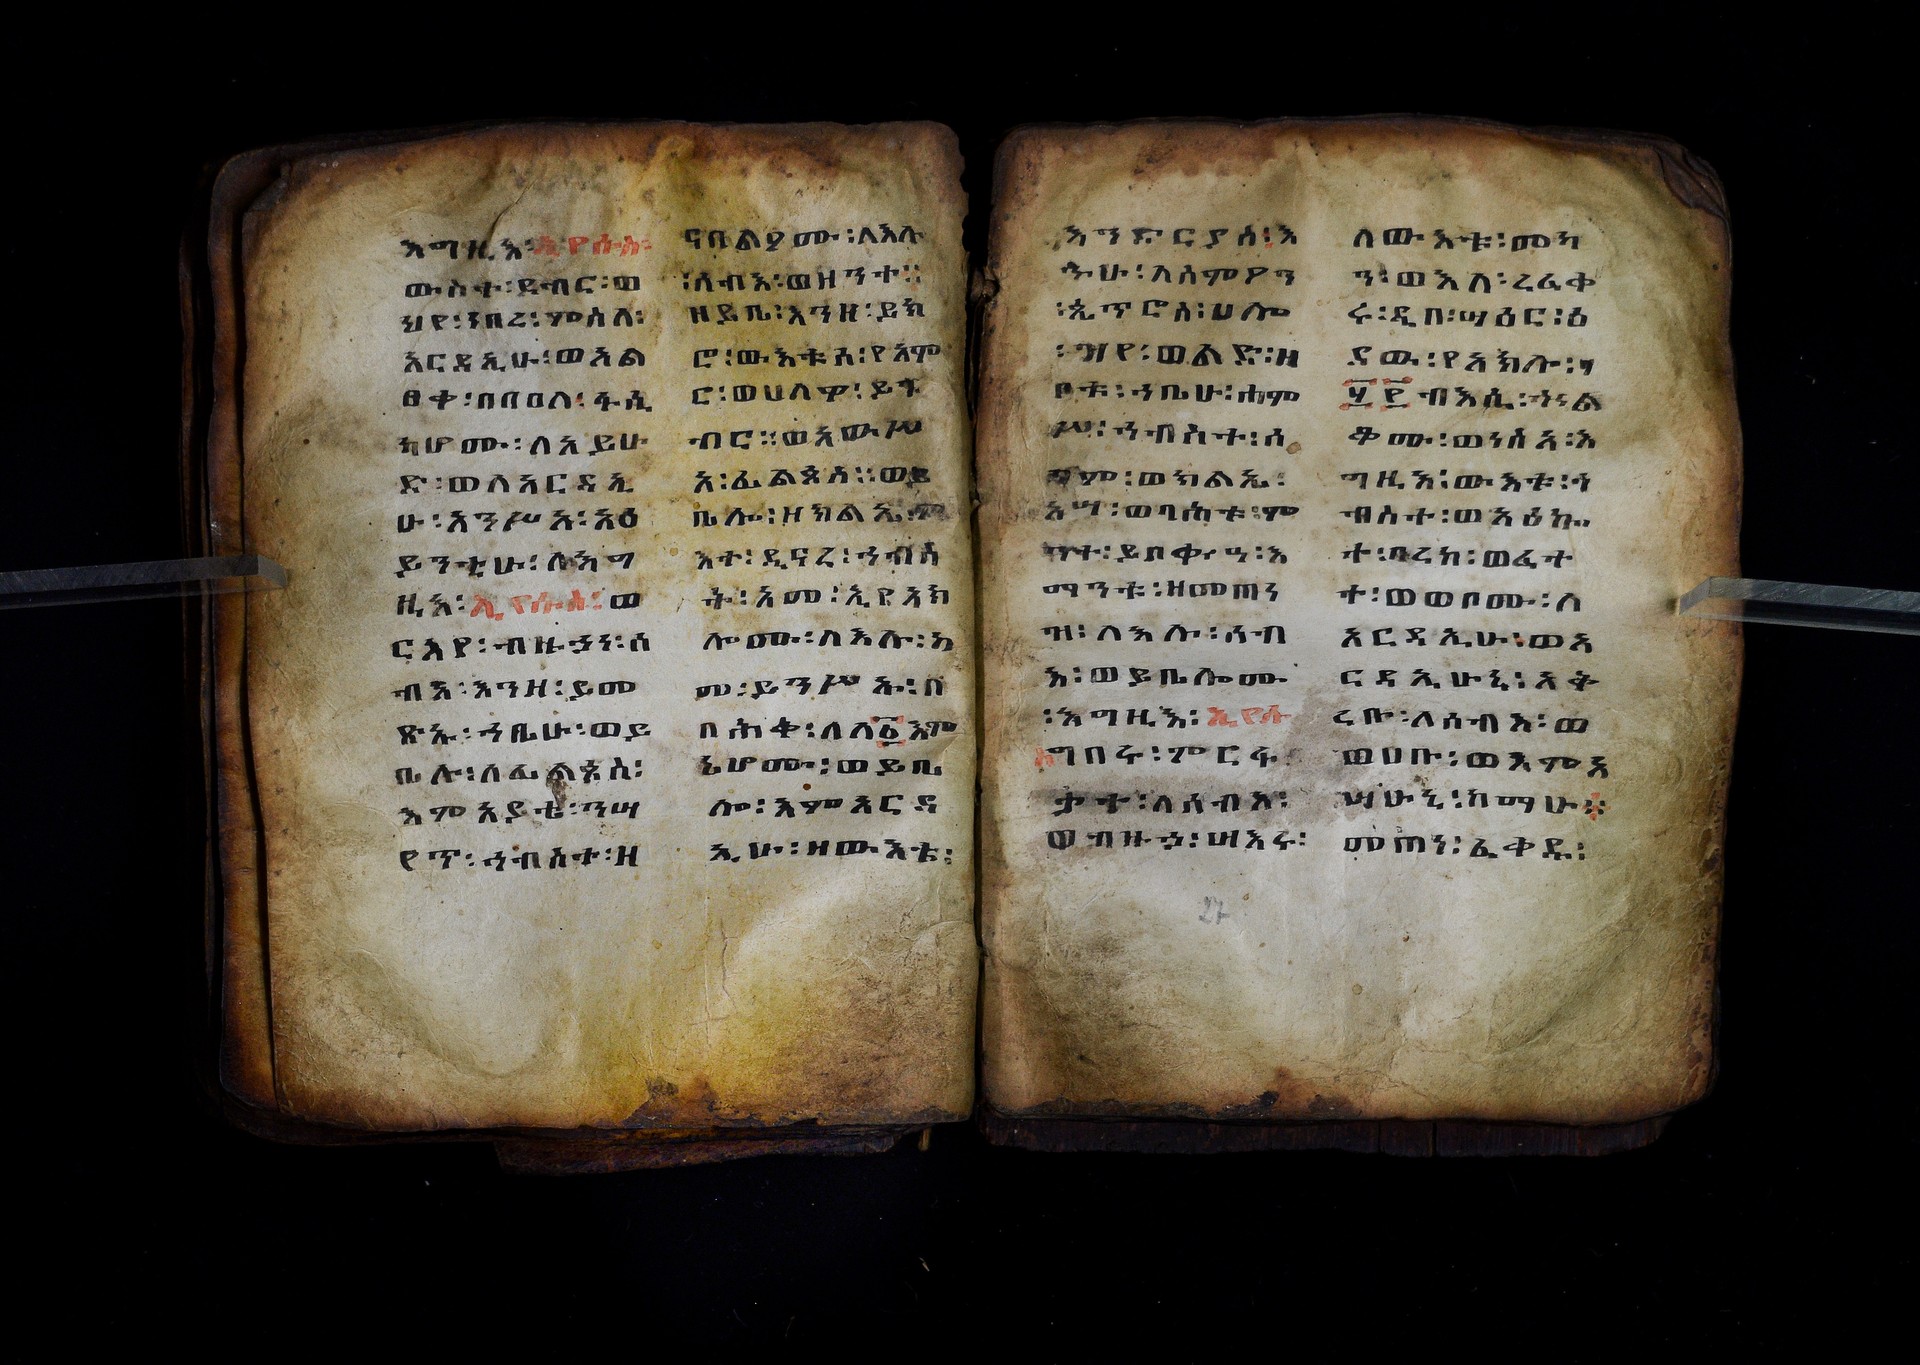 እግዚእ፡ኢየሱስ፡
ውስተ፡ደብር፡ወ
ህየ፡ነበረ፡ምስለ፡
አርዳኢሁ፡ወአል
ፀቀ፡በበዐለ፡ፋሲ
ካሆሙ፡ለአይሁ
ድ፡ወለአርዳኢ
ሁ፡አንሥአ፡አዕ
ይንቲሁ፡ለእግ
ዚእ፡ኢየሱስ፡ወ
ርእየ፡ብዙኃነ፡ሰ
ብእ፡እንዘ፡ይመ
ጽኡ፡ኀቤሁ፡ወይ
ቤሎ፡ለፊልጶስ፡
እምአይቴ፡ንሣ
የጥ፡ኅብስተ፡ዘ
ናበልዖሙ፡ለእሉ
፡ሰብእ፡ወዘንተ፡፡
ዘይቤ፡እንዘ፡ይክ
ሮ፡ውእቱሰ፡የአም
ር፡ወሀለዎ፡ይግ
ብር፡፡ወአውሥ
አ፡ፊልጶስ፡፡ወይ
ቤሎ፡ዘክልኤ፡ም
እተ፡ዲናረ፡ኅብስ
ት፡እመ፡ኢየአክ
ሎሙ፡ለእሉ፡እ
መ፡ይንሥኡ፡በ
በሕቀ፡ለለ፩እም
ኔሆሙ፡ወይቤ
ሎ፡እምአርዳ
ኢሁ፡ዘውእቱ፡
እንድርያስ፡እ
ኁሁ፡ለስምዖን
፡ጴጥሮስ፡ሀሎ
፡ዝየ፡ወልድ፡ዘ
ቦቱ፡ኀቤሁ፡ሐም
ሥ፡ኅብስተ፡ሰ
ገም፡ወክልኤ፡
ዓሣ፡ወባሕቱ፡ም
ንተ፡ይበቍዓ፡እ
ማንቱ፡ዘመጠነ
ዝ፡ለእሉ፡ሰብ
እ፡ወይቤሎሙ
፡እግዚእ፡ኢየሱ
ስግበሩ፡ምርፋ
ቃተ፡ለሰብእ፡
ወብዙኃ፡ሣእሩ፡
ለውእቱ፡መካ
ን፡ወእለ፡ረፈቁ
ሩ፡ዲበ፡ሣዕር፡ዕ
ደው፡የአክሉ፡
፶፻ብእሲ፡ኁል
ቆሙ፡ወነሥአ፡እ
ግዚእ፡ውእቱ፡ኅ
ብስተ፡ወአዕኰ
ተ፡ባረከ፡ወፈተ
ተ፡ወወሀቦሙ፡ለ
አርዳኢሁ፡ወአ
ርዳኢሁኒ፡አቅ
ረቡ፡ለሰብእ፡ወ
ወሀቡ፡ወእምአ
ሣሁኒ፡ከማሁ።
መጠነ፡ፈቀዱ፡
27